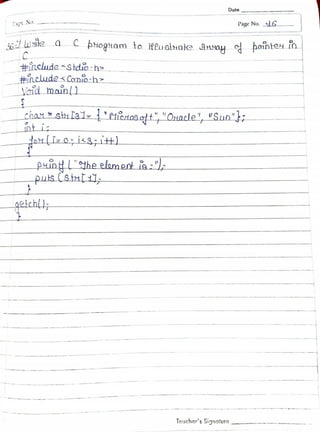 Date
Expt. No.
Page No. 46
36.) Write a C program to illustrate Array of pointer in
C
#include <Stdio.h>
#include <Conio.h>
Void main()
{
char * str[3]= {"Microsoft", "Oracle", "Sun"};
int i;
for (I=0; i<3; i++)
{
printf ("The element is:");
puts (str[1];
}
getch();
}
Teacher's Signature